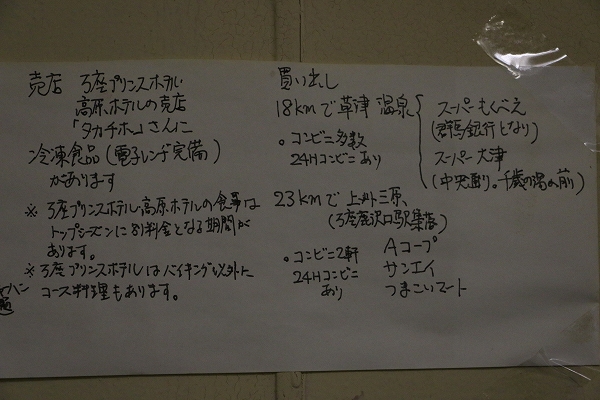 売店 万座プリンスホテル
高原ホテルの売店
「タカチホ」さんに
冷凍食品(電子レンヂ完備)
があります
※ 万座プリンスホテル、高原ホテルの食事は
トップシーズンに別料金となる期間が
あります。
※ 万座プリンスホテルはバイキング以外に
コース料理もあります。
買い出し
18kmで草津温泉
・コンビニ多数
24Hコンビニあり
スーパーもくべえ
(群馬銀行となり)
スーパー大津
(中央通り。千歳の湯の前)
23kmで 上州三原、
(万座鹿沢口駅集落)
・コンビニ2軒
24Hコンビニ
あり
Aコープ
サンエイ
つまごいマート